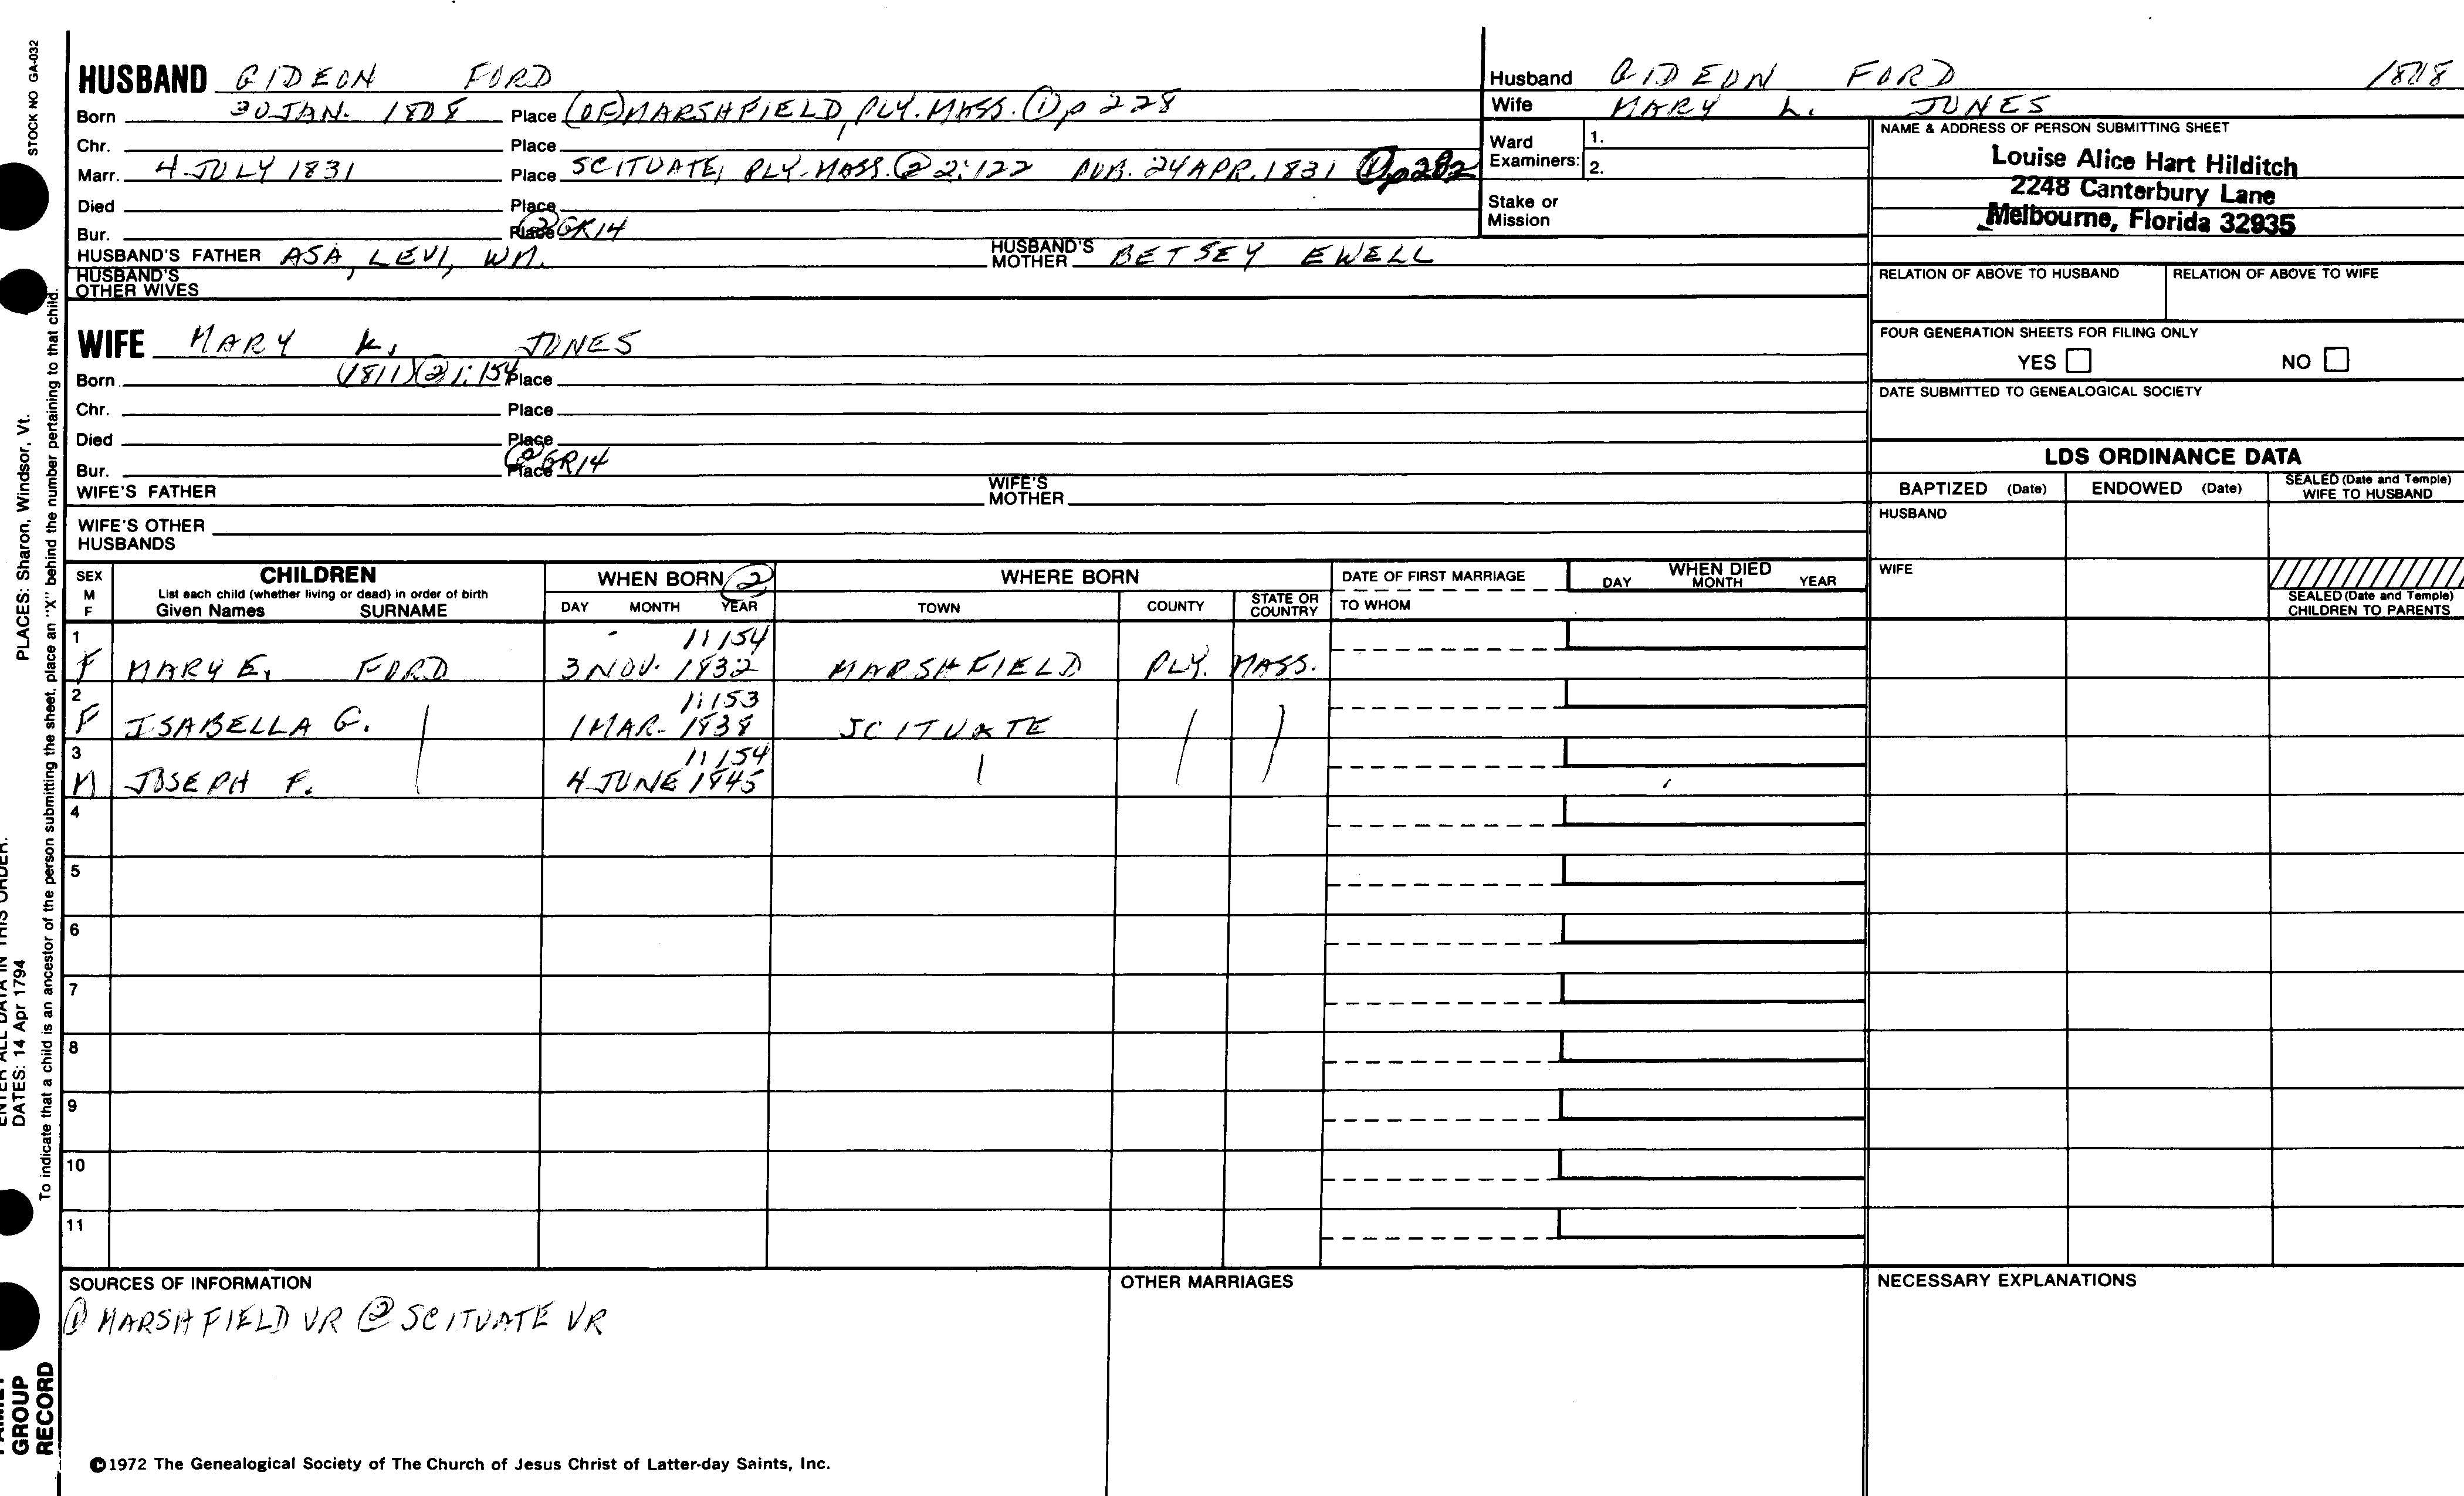 STOCK NO GA-032
HUSBAND GIDEON FORD
Born 30 JAN. 1808 Place (OF) MARSHFIELD, PLY. MASS. ① p 228
Chr. Place
Marr. 4 JULY 1831 Place SCITUATE, PLY. MASS. ② 2:122 PUB. 24 APR. 1831 ① p 282
Died Place
Bur. Place ② GR14
HUSBAND'S FATHER ASA, LEVI, WM. HUSBAND'S MOTHER BETSEY EWELL
HUSBAND'S OTHER WIVES
WIFE MARY L. JONES
Born (1811) ② 1:154 Place
Chr. Place
Died Place
Bur. Place ② GR14
WIFE'S FATHER WIFE'S MOTHER
WIFE'S OTHER HUSBANDS
Husband GIDEON FORD 1808
Wife MARY L. JONES
Ward Examiners: 1.
2.
Stake or Mission
NAME & ADDRESS OF PERSON SUBMITTING SHEET
Louise Alice Hart Hilditch
2248 Canterbury Lane
Melbourne, Florida 32935
RELATION OF ABOVE TO HUSBAND RELATION OF ABOVE TO WIFE
FOUR GENERATION SHEETS FOR FILING ONLY
YES NO
DATE SUBMITTED TO GENEALOGICAL SOCIETY
LDS ORDINANCE DATA
BAPTIZED (Date) ENDOWED (Date) SEALED (Date and Temple) WIFE TO HUSBAND
HUSBAND
WIFE
SEALED (Date and Temple) CHILDREN TO PARENTS
SEX M F
CHILDREN
List each child (whether living or dead) in order of birth
Given Names SURNAME
WHEN BORN ②
DAY MONTH YEAR
WHERE BORN
TOWN COUNTY STATE OR COUNTRY
DATE OF FIRST MARRIAGE
TO WHOM
WHEN DIED
DAY MONTH YEAR
1 1:154
F MARY E. FORD 3 NOV. 1832 MARSHFIELD PLY. MASS.
2 1:153
F ISABELLA G. | 1 MAR. 1838 SCITUATE | |
3 1:154
M JOSEPH F. | 4 JUNE 1845 | | |
4
5
6
7
8
9
10
11
SOURCES OF INFORMATION
① MARSHFIELD VR ② SCITUATE VR
OTHER MARRIAGES
NECESSARY EXPLANATIONS
©1972 The Genealogical Society of The Church of Jesus Christ of Latter-day Saints, Inc.
PLACES: Sharon, Windsor, Vt.
ENTER ALL DATA IN THIS ORDER:
DATES: 14 Apr 1794
To indicate that a child is an ancestor of the person submitting the sheet, place an "X" behind the number pertaining to that child.
FAMILY
GROUP
RECORD